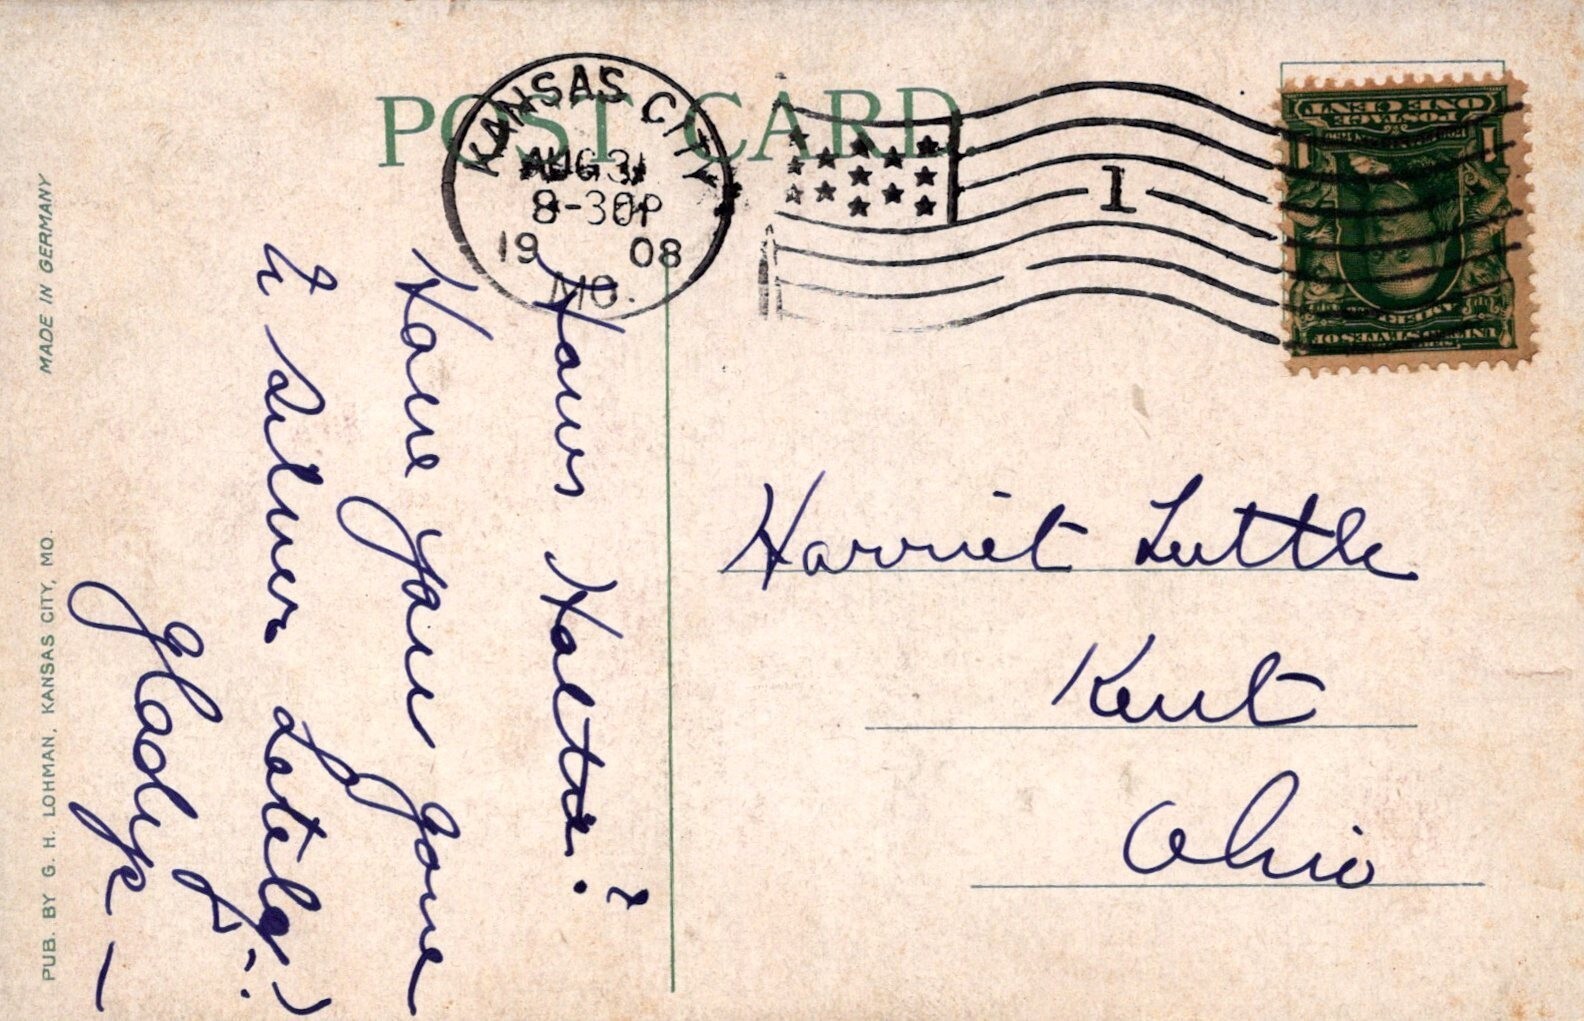 POST CARD
KANSAS CITY
AUG 31
8-30P
19 08
MO.
1
ONE CENT
POSTAGE
Harriet Luttle
Kent
Ohio
Haws
Have you gone
to Silver Lately?
Gladys —
MADE IN GERMANY
PUB. BY G. H. LOHMAN, KANSAS CITY, MO.